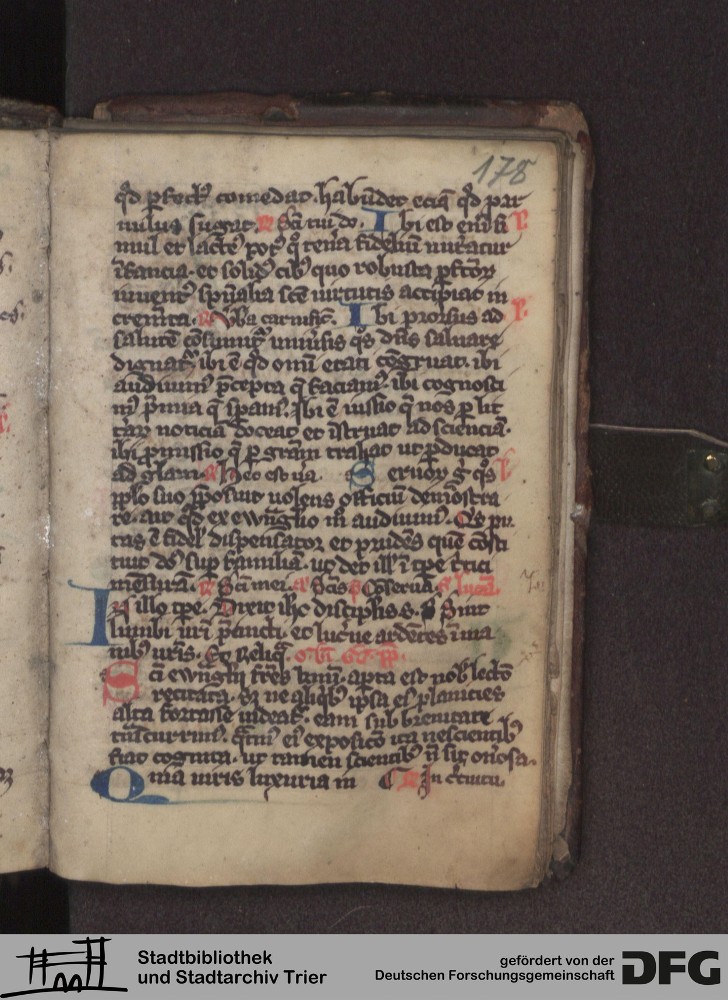 178
qd pfectꝰ comedat. habūdet eciā qd par
uulus sugat. ℟ Sci tui dn̄e. Ibi est eni si
mul et lacteꝰ potꝰ q̄ tenera fideliū nutriatur
īfancia. et solidꝰ cibꝰ quo robusta pfectoꝝ
iuuentꝰ spūalia sc̄e uirtutis accipiat in
crem̄ta. ℟ Vba carnific̄. Ibi prorsus ad
salutē cōsulitur uniūsis q̄s dn̄s saluare
dignatꝰ. ibi ē qd omī etati cōgruat. ibi
audiuimꝰ p̄cepta q̄ faciamꝰ. ibi cognosci
mꝰ p̄mia q̄ speramꝰ. Ibi ē iussio q̄ nos p lit
teraꝝ noticiā doceat et īstruat ad scienciā.
ibi pmissio q̄ p grām trahat ut pducat
ad glam. ℟ Hec est ua. Seruoꝝ g̊ q̄s
pplo suo pposuit uolens officiū demōstra
re. aut qd ex ewn̄glio mō audiuimꝰ. Qs pu
tas ē fidelꝰ dispensator et prudēs quē cōsti
tuit dn̄s sup familiā. ut det illꝰ ī tpe tritici
mēsurā. ℟ Sci mei. Scis Cōseruā. luca.
In illo tpe. Dixit ihc discipłis s. Sint
lumbi uri p̄cincti. et lucerne ardētes ī ma
nibꝰ uris. Et Reliq̄.
Sci ewn̄glii frēs kmi. apta est nob lectō
recitata. sꝫ ne aliqꝰbꝰ ipsa eiꝰ planicies
alta fortasse uideatꝰ. eam sub breuitate
trāscurrimꝰ. q̄tinꝰ eiꝰ exposicō ita nescientibꝰ
fiat cognita. ut tamen scientibꝰ n̄ sit on̄osa.
Quia uiris luxuria in ℟ In c̄cuitu
Stadtbibliothek
und Stadtarchiv Trier
gefördert von der
Deutschen Forschungsgemeinschaft
DFG